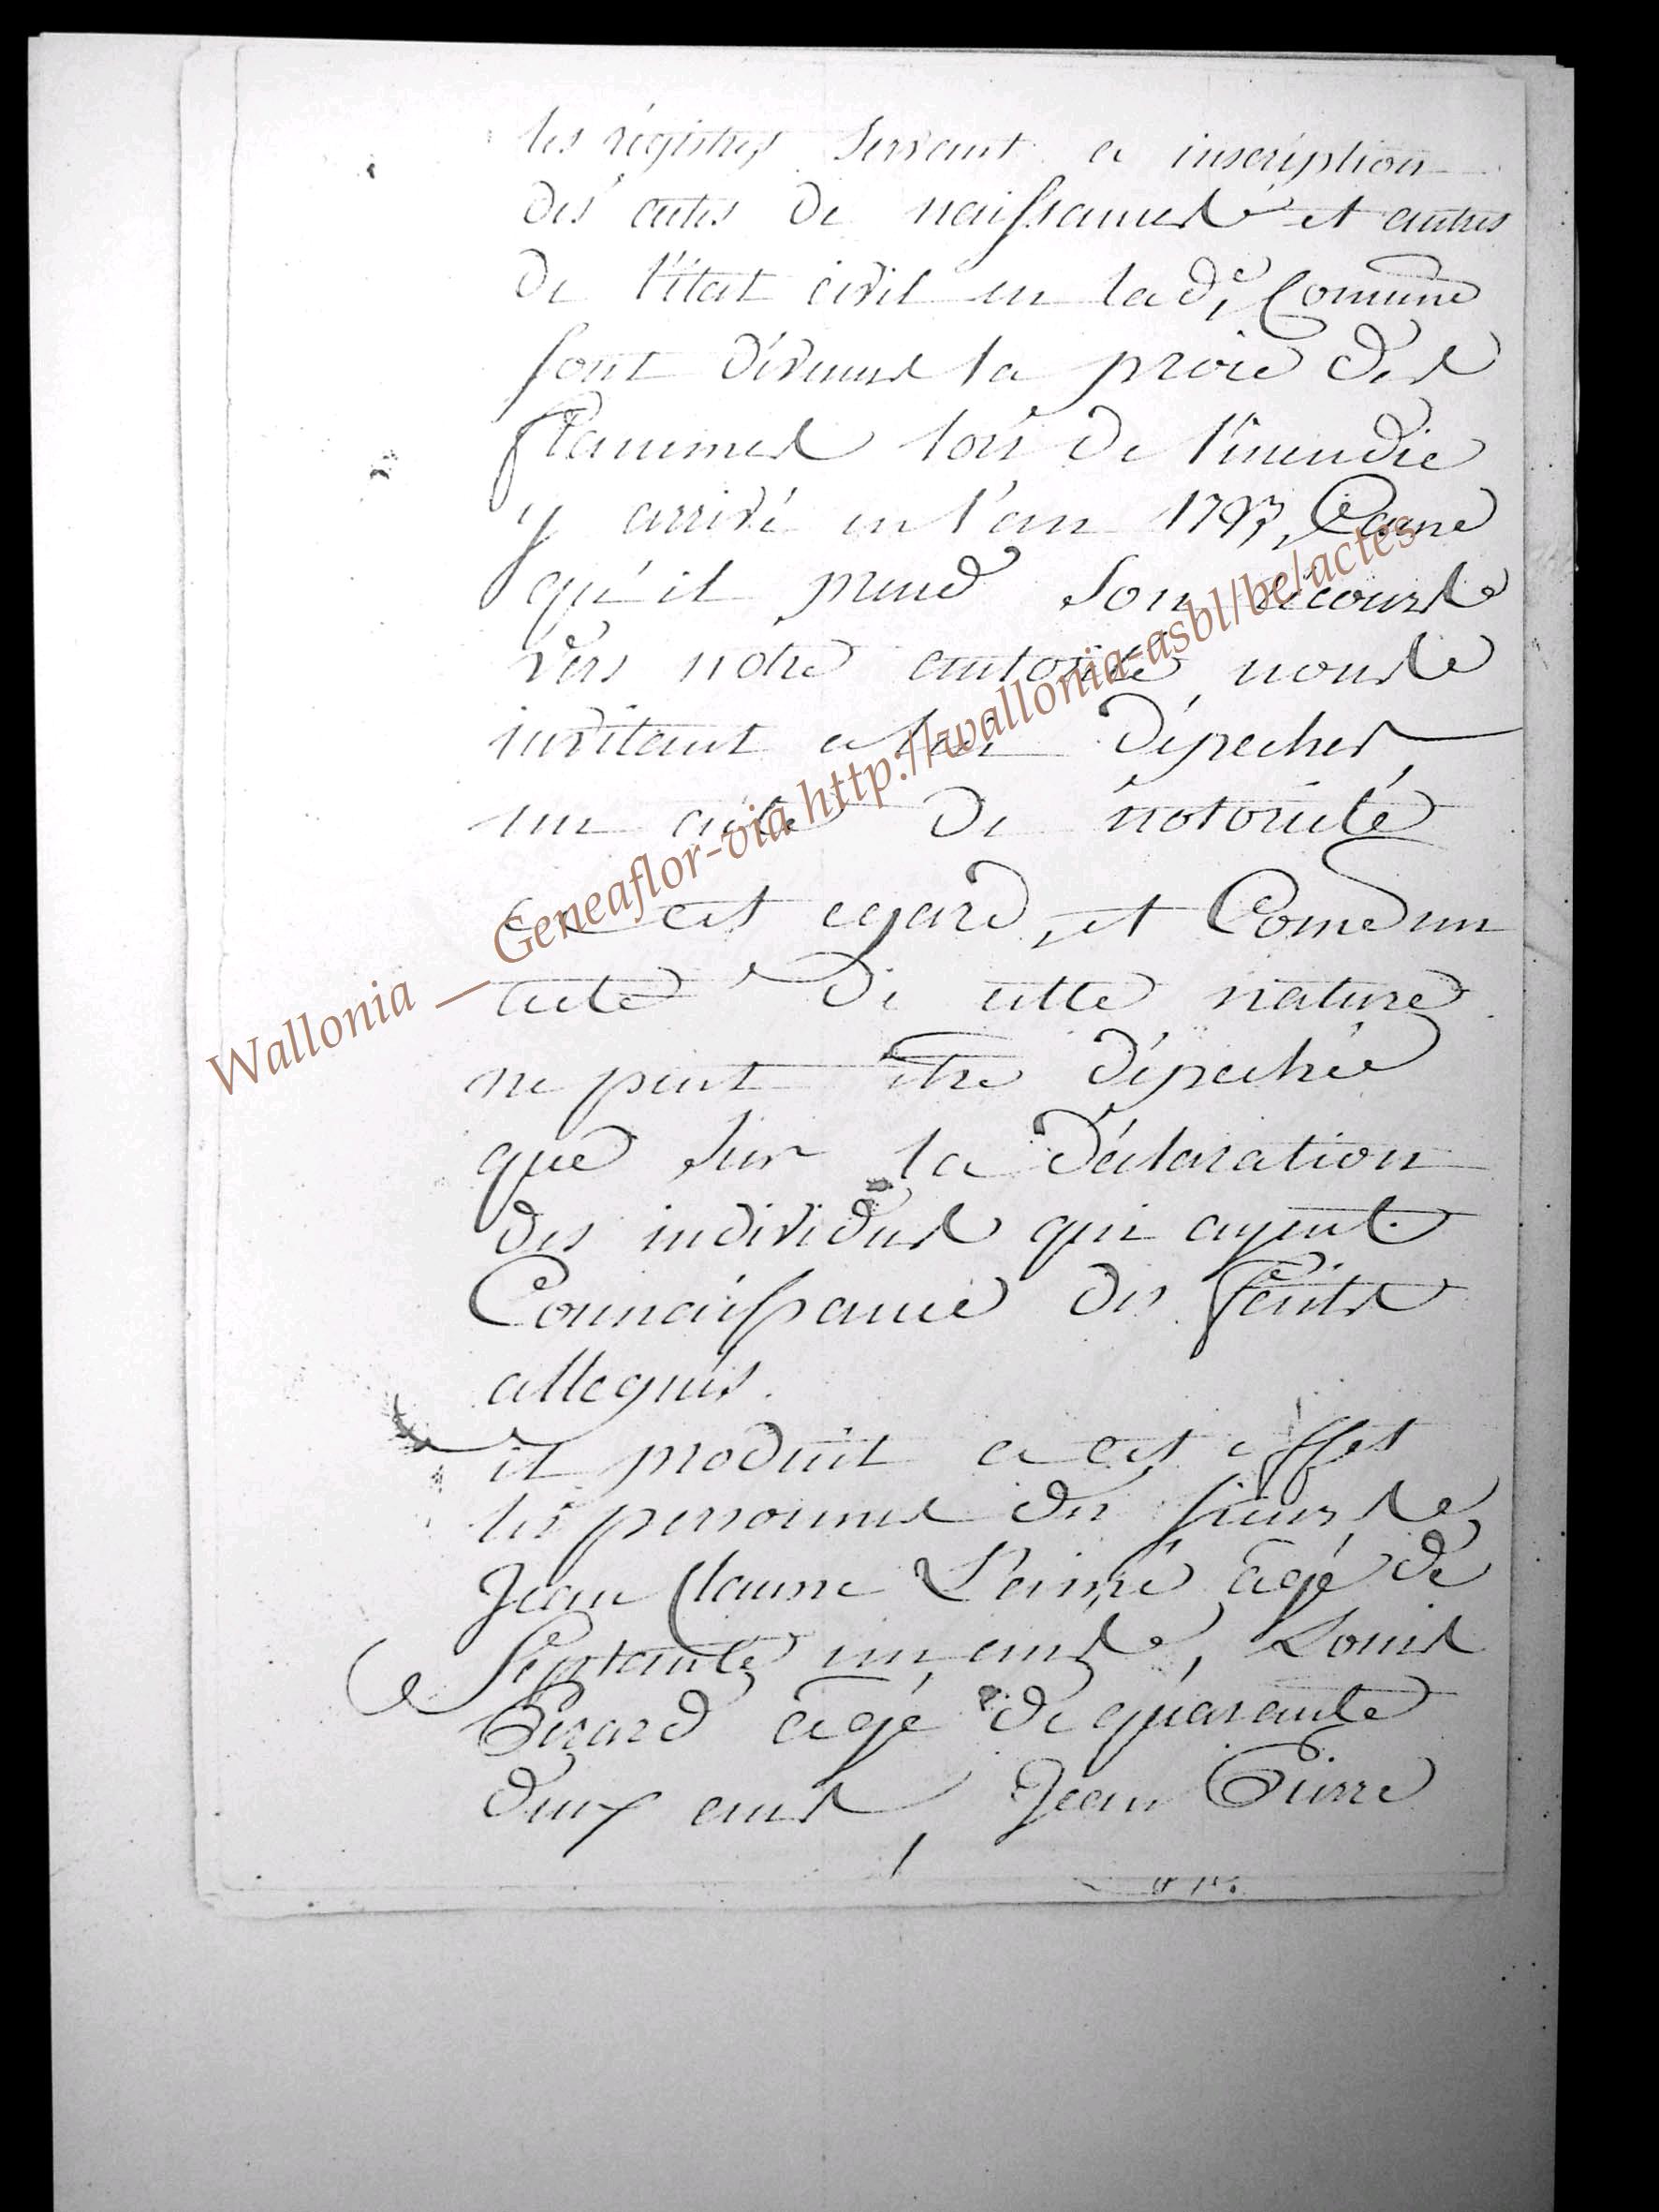 les régistres servant a inscription
des actes de naissances et autres
de l'état civil en lad.e Comune
sont dévenus la proie des
flammes lors de l'incendie
y arrivé en l'an 1793,
qu'il prend son récours
vers notre autorité nous
invitant a leur dépecher
un acte de notorieté
a cet egard, et Come un
acte de cette nature
ne peut étre dépechée
que sur la déclaration
des individus qui ayent
Connaissance des faits
allegués.
il produit a cet effet
les personnes des sieurs
Jean Claune L'ainé agé de
Septante un ans, Louis
Pirard agé de quarante
deux ans, Jean Pierre
Wallonia _ Geneaflor-via http://wallonia-asbl/be/actes